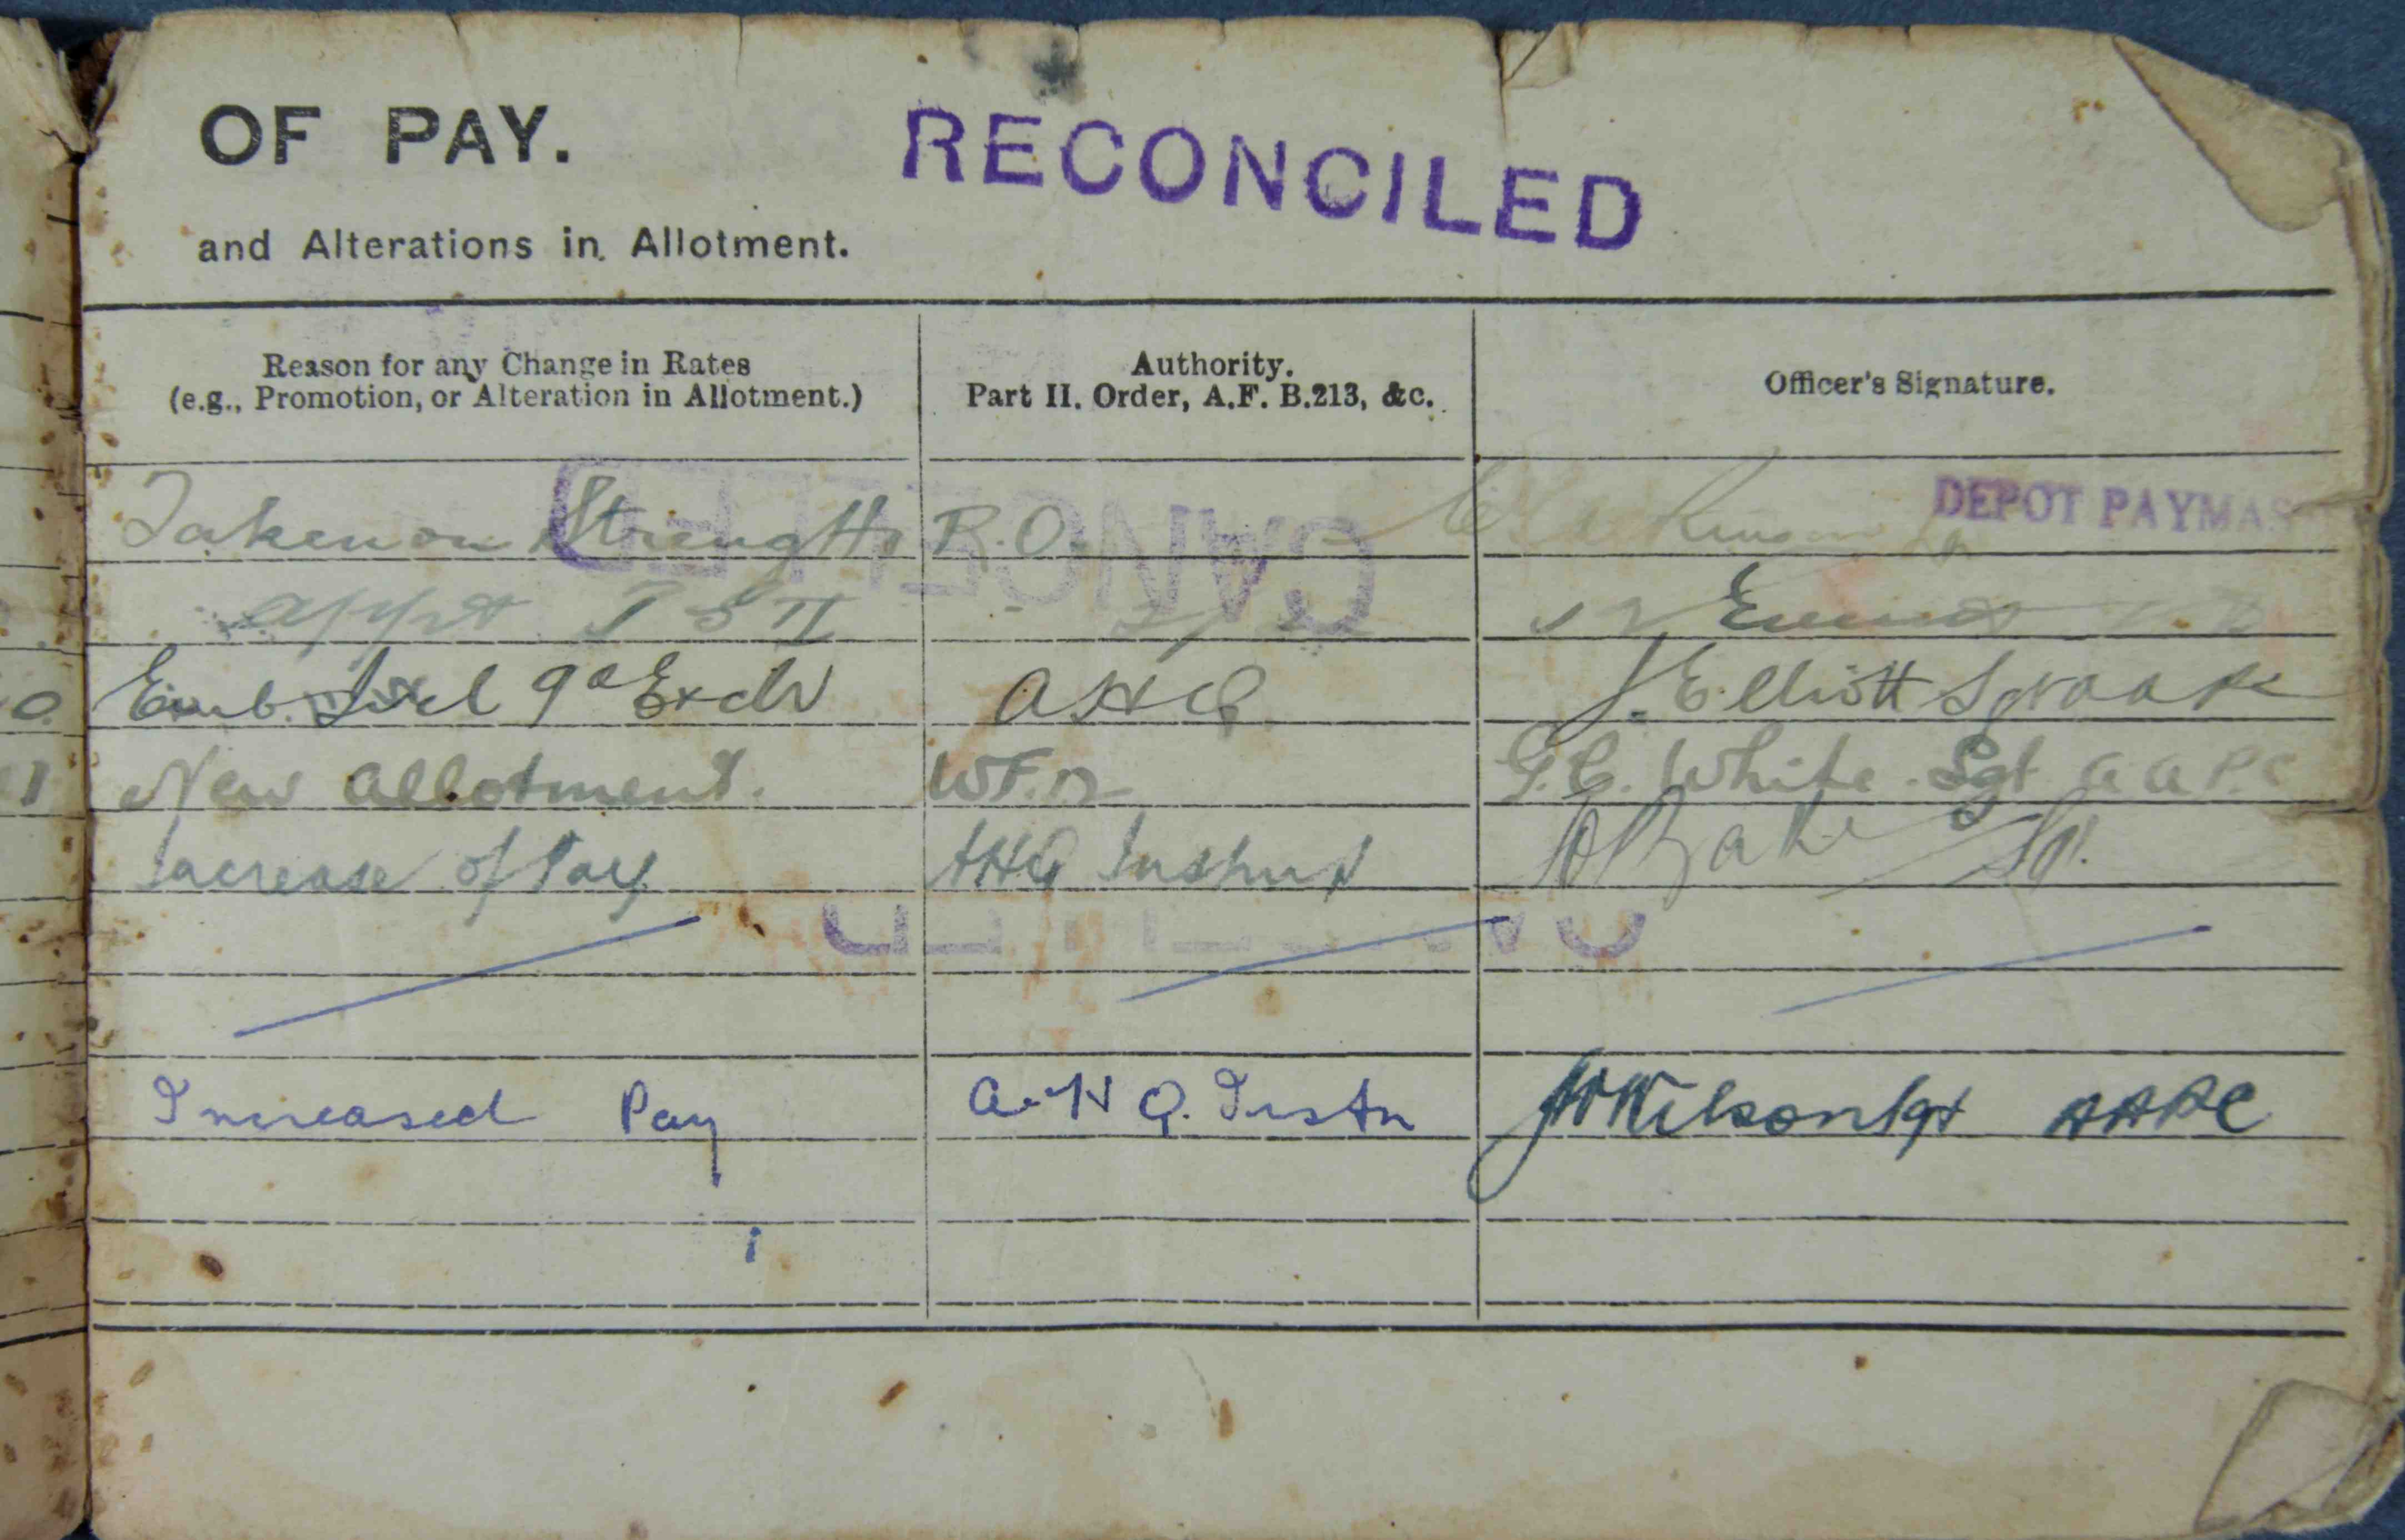 OF PAY.
RECONCILED
and Alterations in Allotment.
Reason for any Change in Rates
(e.g., Promotion, or Alteration in Allotment.)
Authority.
Part II. Order, A.F. B.213, &c.
Officer's Signature.
CANCELLED
Taken on Strength R.O. DEPOT PAYMAS
appt T S II
Emb. 9d Ex dw AHQ J. Elliott Sgt AAPC
New Allotment. WF.12 G.C. White Sgt AAPC
Increase of Pay AHQ Sgt.
Increased Pay A.H Q. Instn JWWilson Sgt AAPC